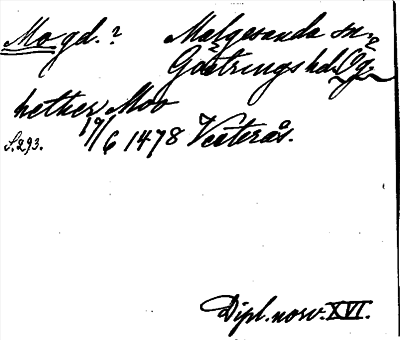 Mo gd.? Malgesanda sn,
Göstrings hd. Ög.
hetker Moo
S.293. 17/6 1478 Vesterås.
Dipl. norv. XVI.